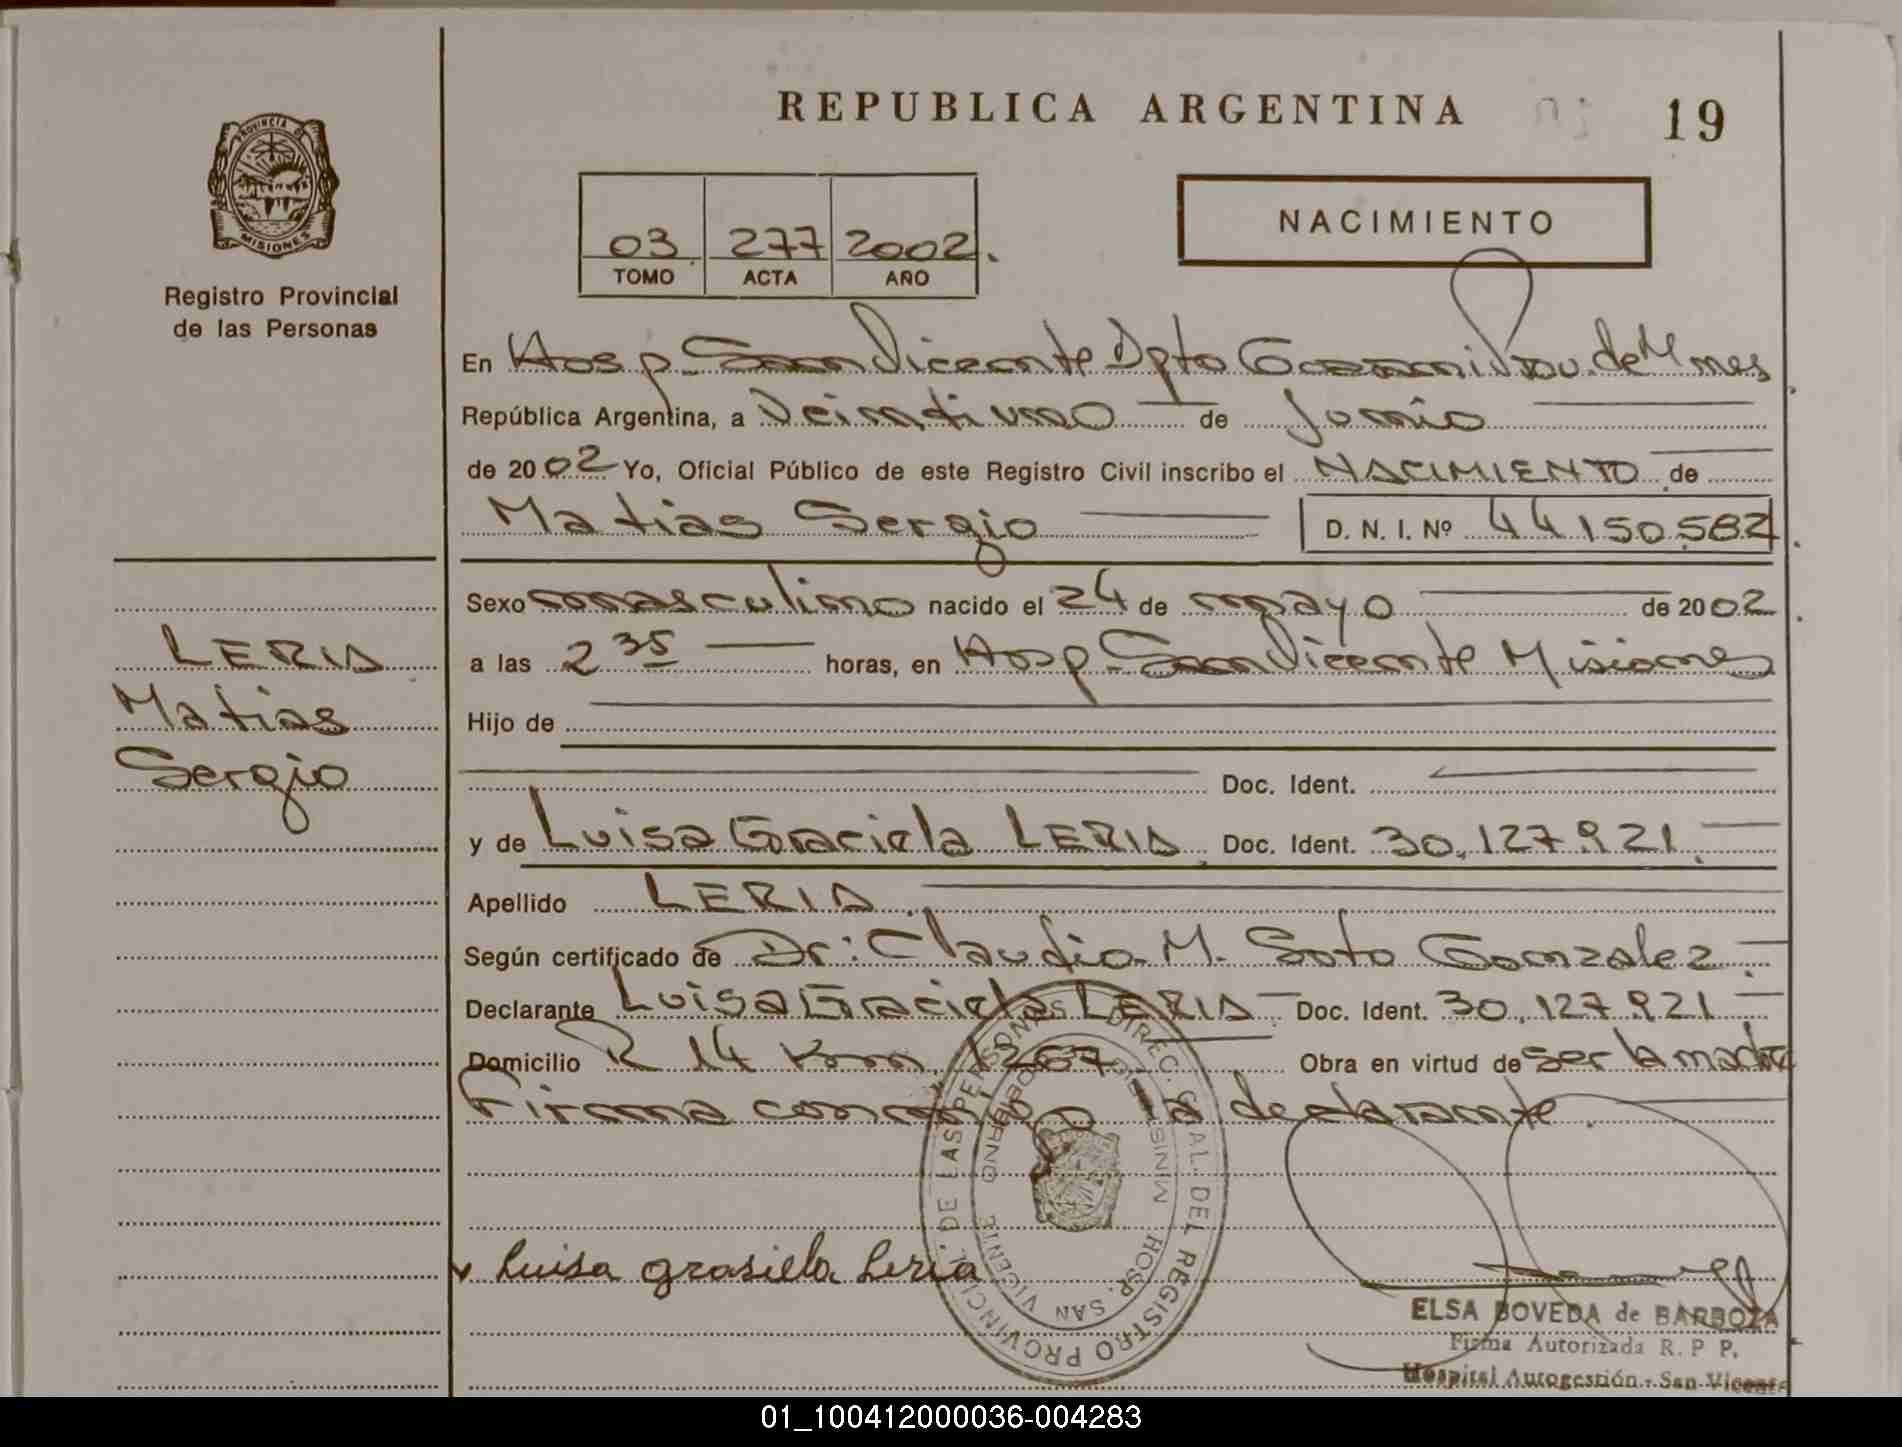 REPUBLICA ARGENTINA 19
PROVINCIA DE
MISIONES
Registro Provincial
de las Personas
03 277 2002.
TOMO ACTA AÑO
NACIMIENTO
En Hosp. San Vicente Dpto Guarani Prov. de Mnes
República Argentina, a Veintiuno de Junio
de 2002 Yo, Oficial Público de este Registro Civil inscribo el NACIMIENTO de
Matias Sergio D. N. I. Nº 44150.582
Sexo masculino nacido el 24 de mayo de 2002
a las 2 35 horas, en Hosp. San Vicente Misiones
Hijo de
Doc. Ident.
y de Luisa Graciela LERIA. Doc. Ident. 30.127.921.
Apellido LERIA.
Según certificado de Dr: Claudio M. Soto Gonzalez.
Declarante Luisa Graciela LERIA Doc. Ident. 30.127.921
Domicilio R 14 Km. 1267 Obra en virtud de ser la madre
Firma conmigo la declarante.
LERIA
Matias
Sergio
Luisa grasiela Leria
DIREC. GRAL. DEL REGISTRO PROVINCIAL DE LAS PERSONAS
MINIST. DE GOBIERNO
HOSP. SAN VICENTE
ELSA BOVEDA de BARBOZA
Firma Autorizada R. P. P.
Hospital Autogestión - San Vicente
01_100412000036-004283